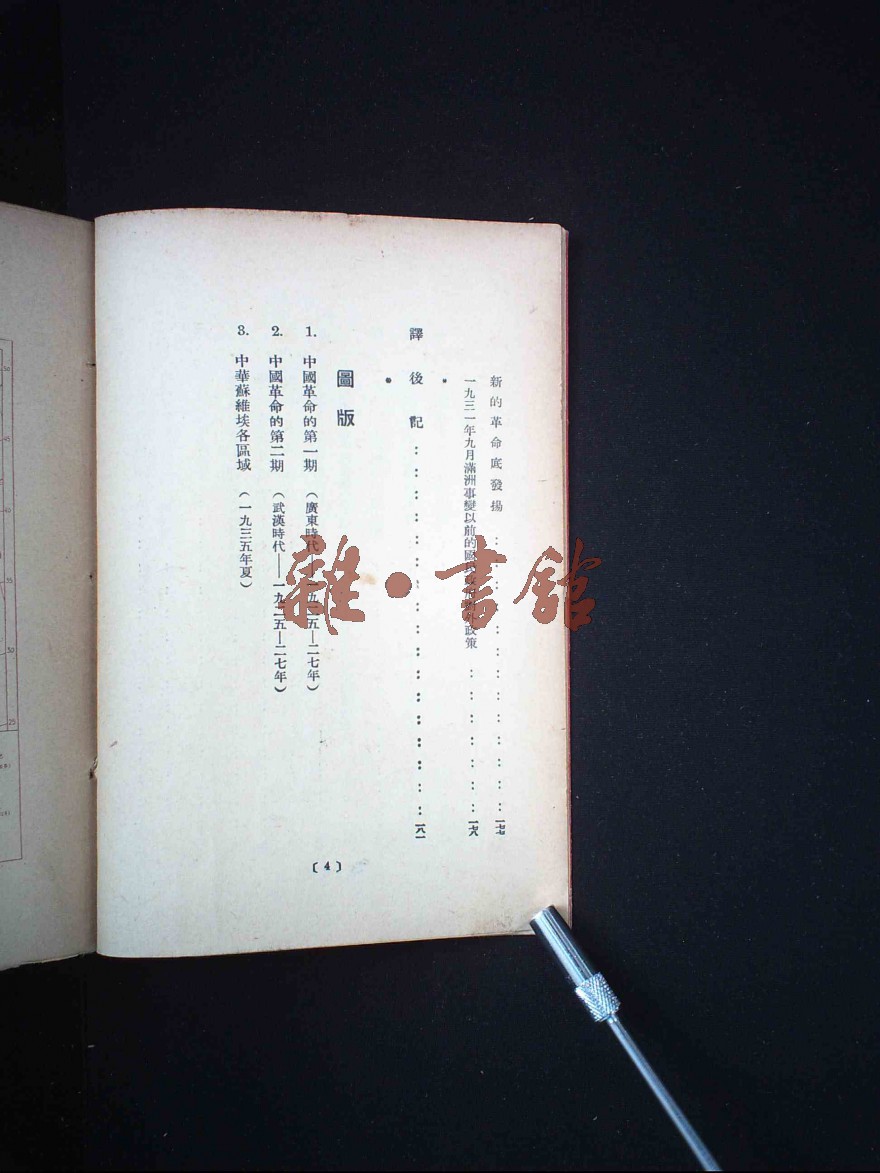 新的革命底發揚 一七七
一九三一年九月滿洲事變以前的國民政府對外政策 一七八
譯後記 一八一
圖版
1. 中國革命的第一期（廣東時代——一九二五—二七年）
2. 中國革命的第二期（武漢時代——一九二五—二七年）
3. 中華蘇維埃各區域（一九三五年夏）
〔4〕
雜·書館
50
45
40
35
30
25